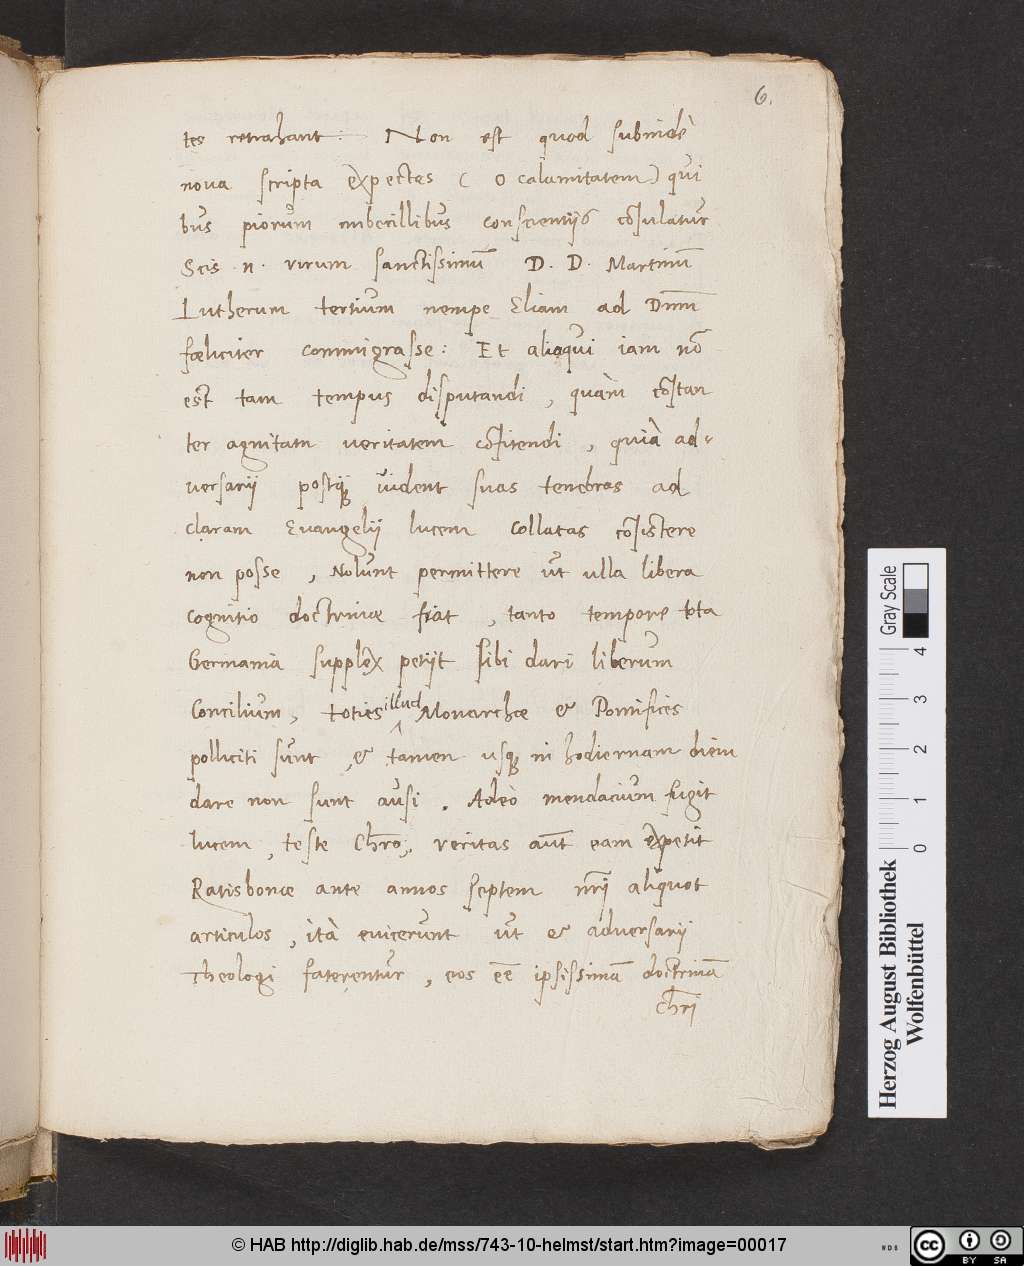 6.
tes retrahant: Non est quod subinde
nova scripta expectes (o calamitatem) qui
bus piorum imbecillibus conscientijs cõsulatur
Scis .n. virum sanctissimũ D. D. Martinũ
Lutherum tertium nempe Eliam ad Dnm̃
fœliciter commigrasse: Et alioqui iam nõ
est tam tempus disputandi, quàm cõstan
ter agnitam veritatem cõfitendi, quià ad-
versarij postq̃ vident suas tenebras ad
claram Evangelij lucem collatas cõsistere
non posse, Nolunt permittere ut ulla libera
cognitio doctrinæ fiat, tanto tempore tota
Germania supplex petijt sibi dari liberum
Concilium, toties illud Monarchæ & Pontifices
polliciti sunt, & tamen usq; in hodiernam diem
dare non sunt ausi. Adeò mendacium fugit
lucem, teste Chro, veritas aũt eam expetit
Ratisbonæ ante annos septem nr̃i aliquot
articulos, ità evicerunt ut & adversarij
Theologi faterentur, eos eẽ ipsissimã doctrinã
Chri
Herzog August Bibliothek
Wolfenbüttel
Gray Scale
0 1 2 3 4
© HAB http://diglib.hab.de/mss/743-10-helmst/start.htm?image=00017
CC BY SA